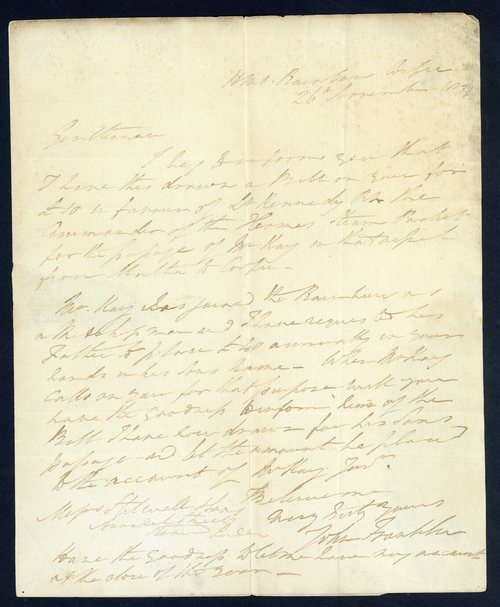 HMS. Rainbow Corfu
26th November 183
Gentlemen
I beg to inform you that
I have this drawn a Bill on you for
£10 in favour of Lt Kennedy RN the
Commander of the Hermes Steam Packet
for the passage of Mr Kay
from Malta to Corfu -
Mr. Kay has joined the Rainbow as
a Midshipman and I have requested his
Father to place £ annually in your
hands in his Sons name - When Mr Kay
calls on you for that purpose will you
have the goodness to inform him of the
Bill I have now drawn for his Sons
passage and let the amount be placed
to the account of Mr Kay Junr.
Believe me
Messrs
Very truly yours
Street
John Franklin
Have the goodness to let me have my account
at the close of the year -